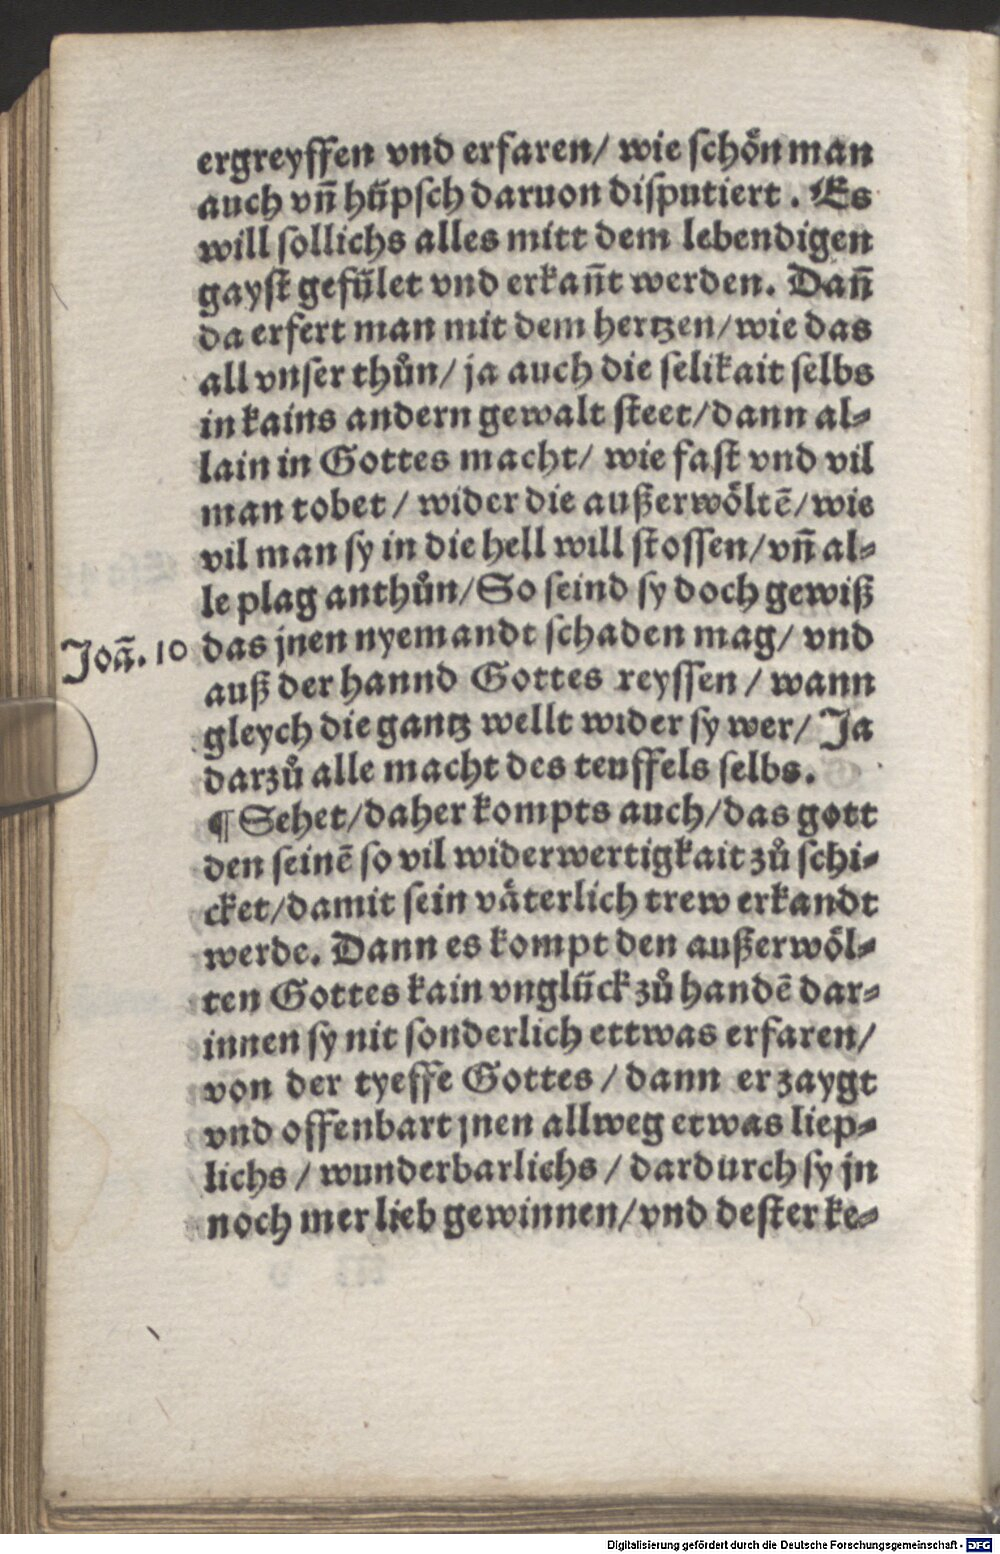 ergreyffen vnd erfaren/ wie schoͤn man
auch vn̄ huͤpsch daruon disputiert . Es
will sollichs alles mitt dem lebendigen
gayst gefuͤlet vnd erkan̄t werden. Dan̄
da erfert man mit dem hertzen/wie das
all vnser thuͦn/ ja auch die selikait selbs
in kains andern gewalt steet/dann al⸗
lain in Gottes macht/ wie fast vnd vil
man tobet / wider die außerwoͤltē/wie
vil man sy in die hell will stossen/vn̄ al⸗
le plag anthuͦn/So seind sy doch gewiß
Joā. 10 das jnen nyemandt schaden mag/ vnd
auß der hannd Gottes reyssen / wann
gleych die gantz wellt wider sy wer/ Ja
darzuͦ alle macht des teuffels selbs.
¶ Sehet/daher kompts auch/das gott
den seinē so vil widerwertigkait zuͦ schi⸗
cket/damit sein vaͤterlich trew erkandt
werde. Dann es kompt den außerwoͤl⸗
ten Gottes kain vngluͤck zuͦ handē dar⸗
innen sy nit sonderlich ettwas erfaren/
von der tyeffe Gottes / dann er zaygt
vnd offenbart jnen allweg etwas liep⸗
lichs / wunderbarlichs / dardurch sy jn
noch mer lieb gewinnen/vnd dester ke⸗
Digitalisierung gefördert durch die Deutsche Forschungsgemeinschaft - DFG